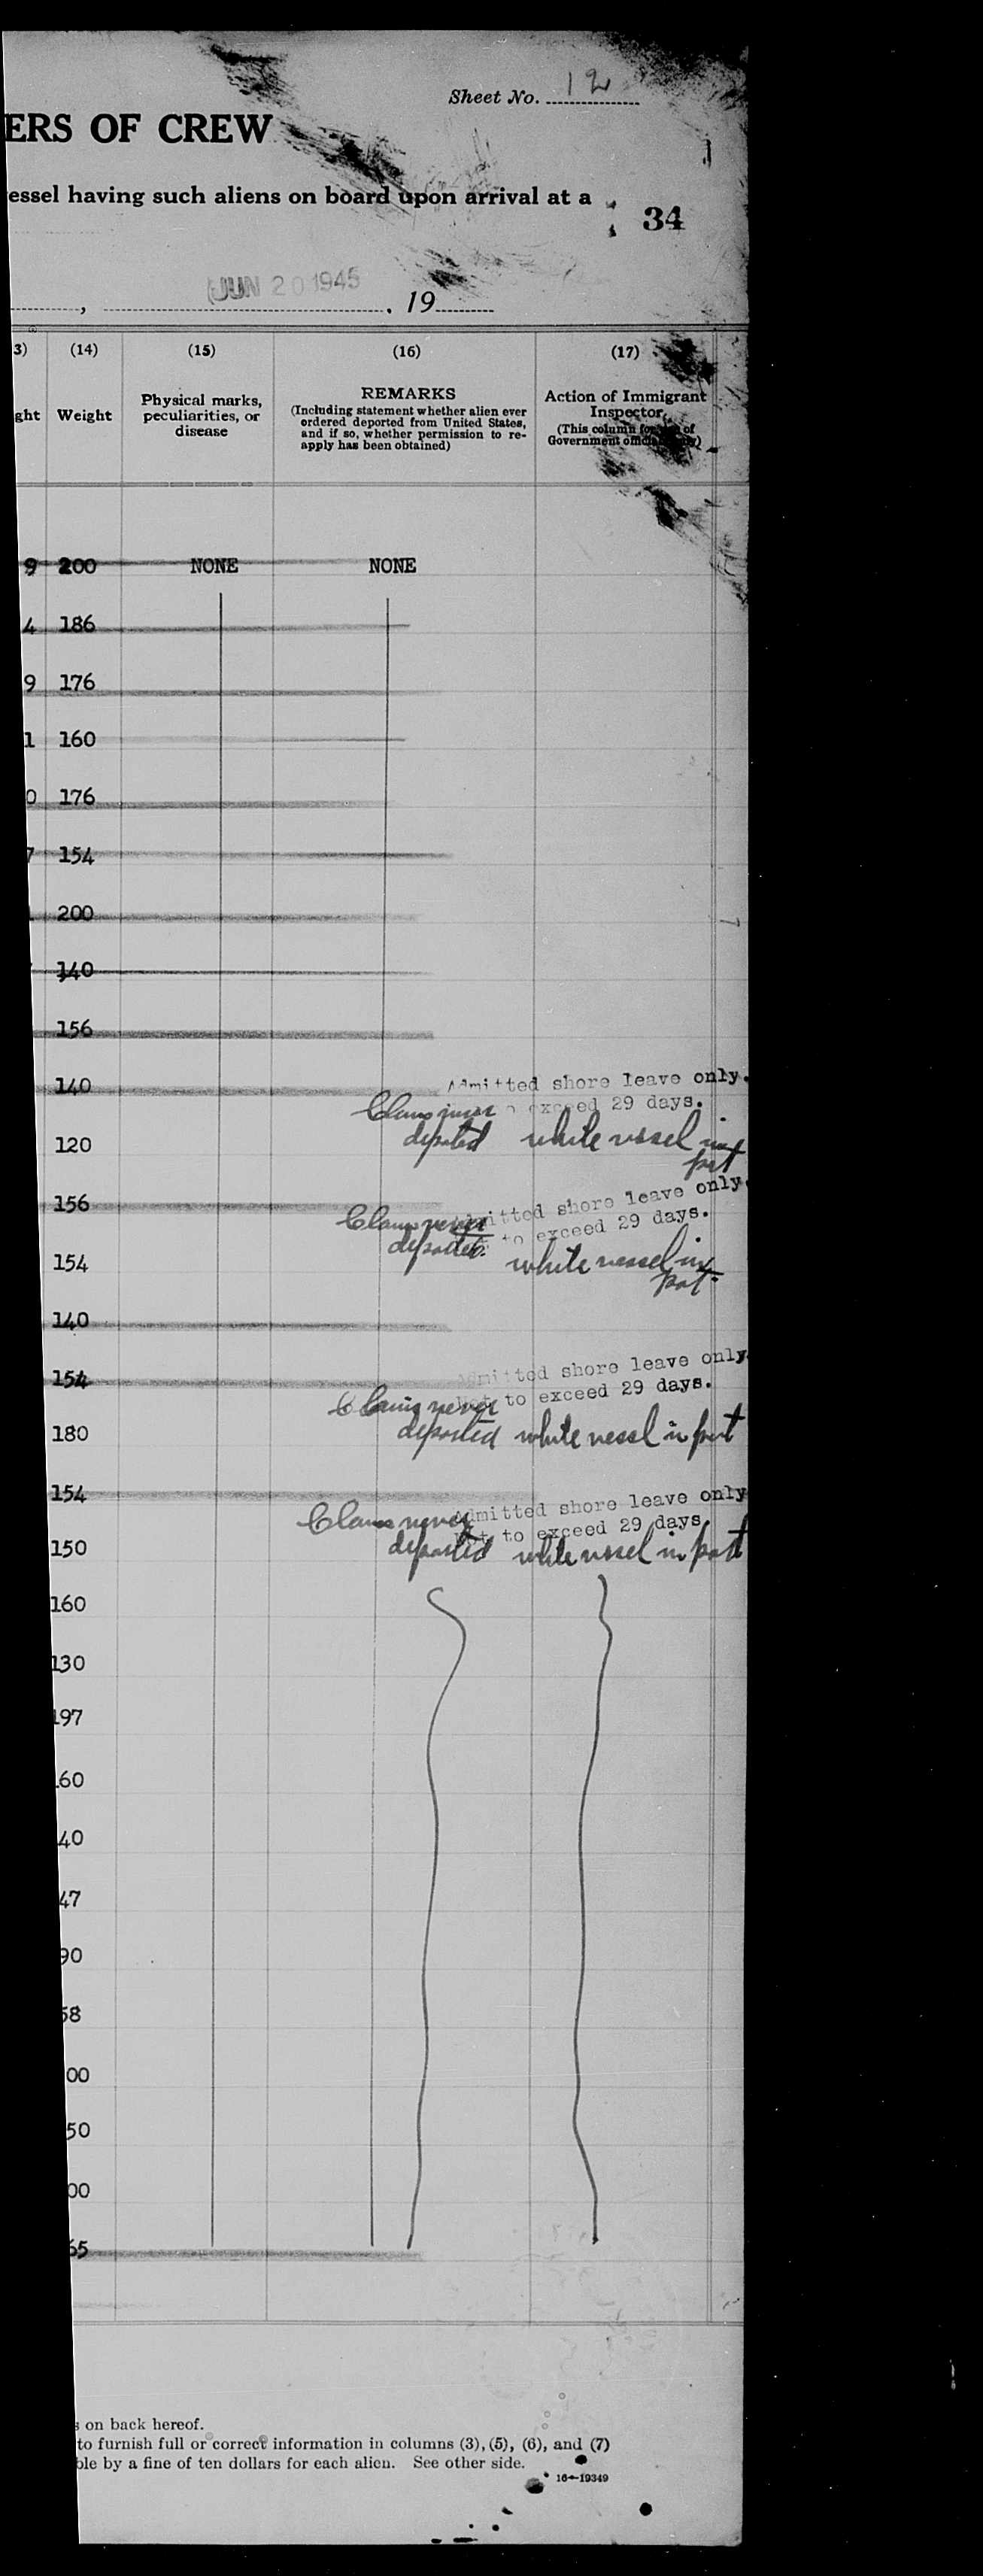 Sheet No. 12
ERS OF CREW
essel having such aliens on board upon arrival at a
34
JUN 20 1945
, 19
3) (14) (15) (16) (17)
ght Weight
Physical marks, peculiarities, or disease
REMARKS
(Including statement whether alien ever
ordered deported from United States,
and if so, whether permission to re-
apply has been obtained)
Action of Immigrant
Inspector
(This column for use of
Government officials only)
9 200 NONE NONE
4 186
9 176
1 160
0 176
7 154
200
140
156
140 Admitted shore leave only.
exceed 29 days.
Claims never
deported while vessel in
port
120
156 Admitted shore leave only.
Claims never to exceed 29 days.
deported.
while vessel in
port.
154
140
154 Admitted shore leave only.
Not to exceed 29 days.
Claims never
180 deported while vessel in port
154 Admitted shore leave only
Claims never Not to exceed 29 days.
150 deported while vessel in port
160
130
197
60
40
47
90
58
00
50
00
65
s on back hereof.
to furnish full or correct information in columns (3), (5), (6), and (7)
ble by a fine of ten dollars for each alien. See other side.
16—19349